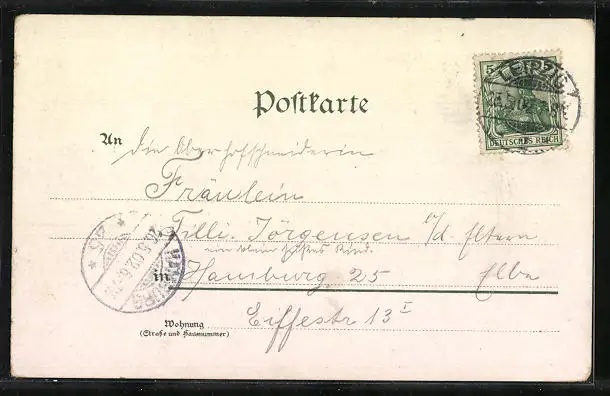 Postkarte
5
LEIPZIG
DEUTSCHES REICH
An die Oberhofschneiderin
Fräulein
Tilli Jörgensen
in Hamburg 25 Elbe
Eiffestr 13 I
Wohnung
(Straße und Hausnummer)
HAMBURG